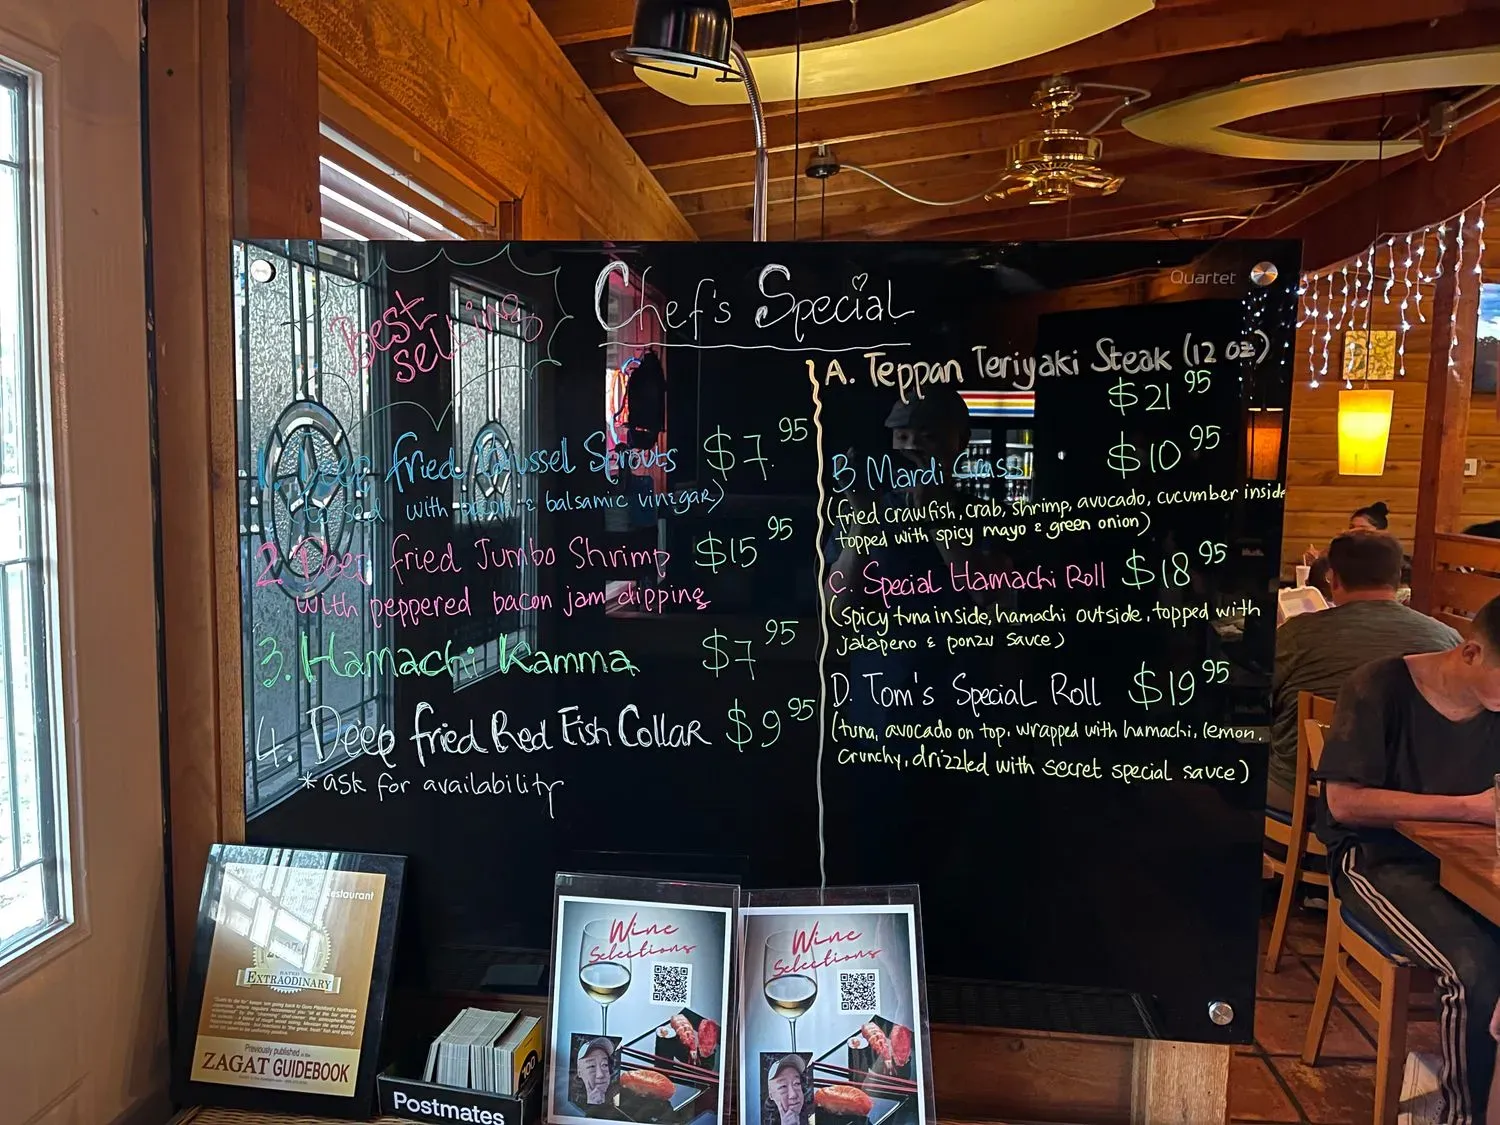 Quartet
Chef's Special
Best
selling
1. Deep fried Brussel Sprouts $7.95
tossed with bacon & balsamic vinegar)
2. Deep fried Jumbo Shrimp $15.95
with peppered bacon jam dipping
3. Hamachi Kamma $7.95
4. Deep fried Red Fish Collar $9.95
*ask for availability
A. Teppan Teriyaki Steak (12 oz)
$21.95
B. Mardi Grass $10.95
(fried crawfish, crab, shrimp, avocado, cucumber inside
topped with spicy mayo & green onion)
C. Special Hamachi Roll $18.95
(spicy tuna inside, hamachi outside, topped with
jalapeno & ponzu sauce)
D. Tom's Special Roll $19.95
(tuna, avocado on top, wrapped with hamachi, lemon,
crunchy, drizzled with secret special sauce)
Restaurant
RATED
EXTRAODINARY
Previously published in the
ZAGAT GUIDEBOOK
Postmates
Wine
Selections
Wine
Selections